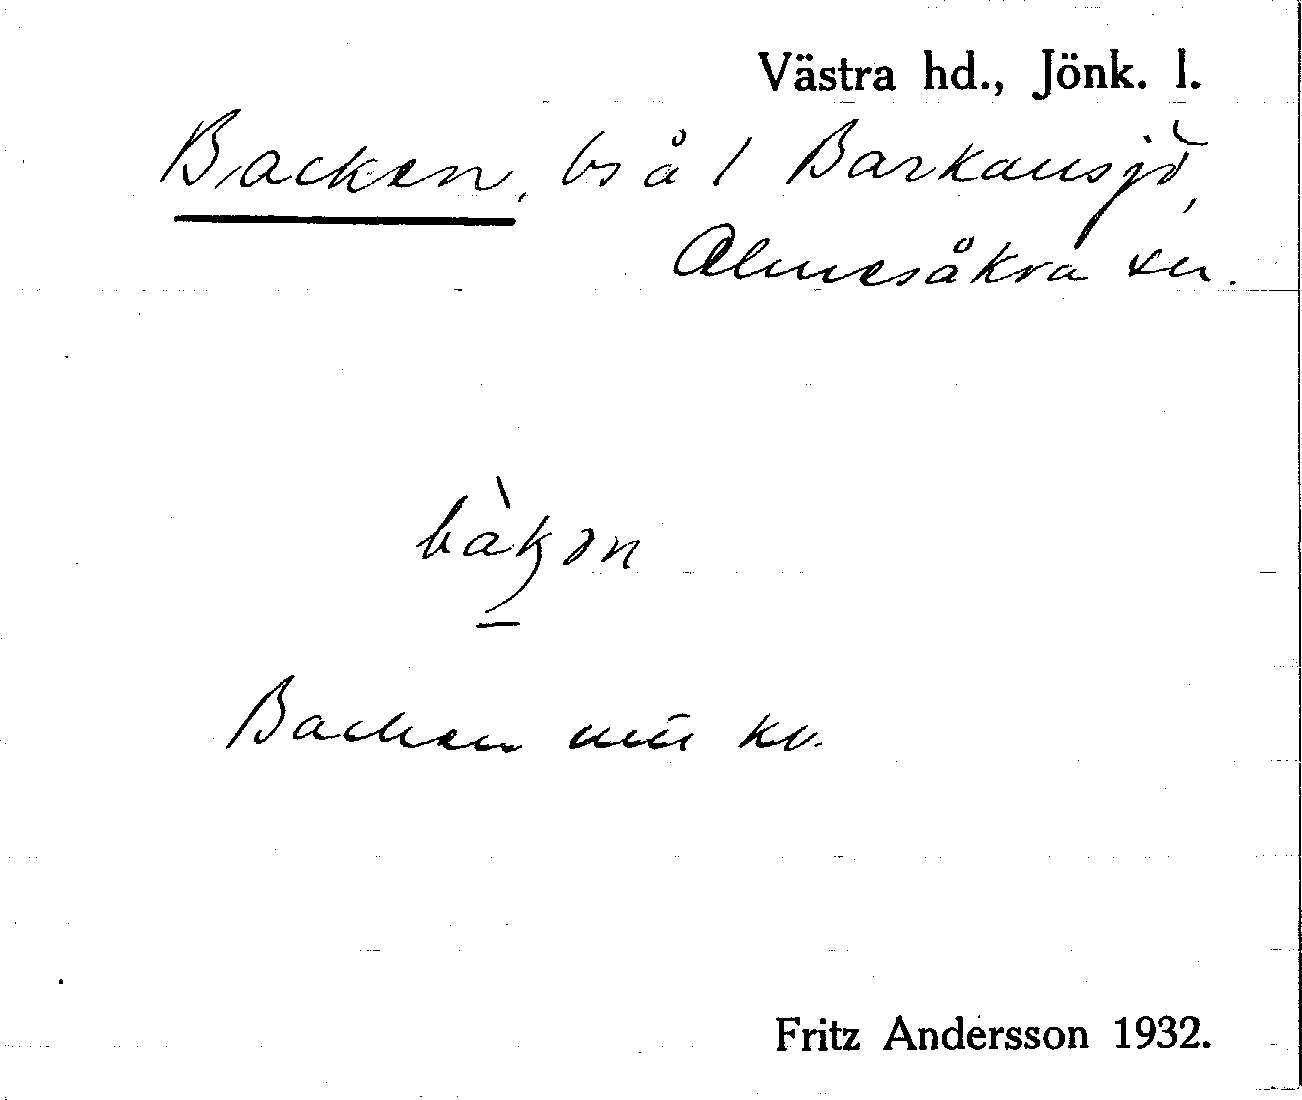 Västra hd., Jönk. l.
Backen, bs å 1 Barkansjö,
Almesåkra sn.
bàkən
Backen kv.
Fritz Andersson 1932.